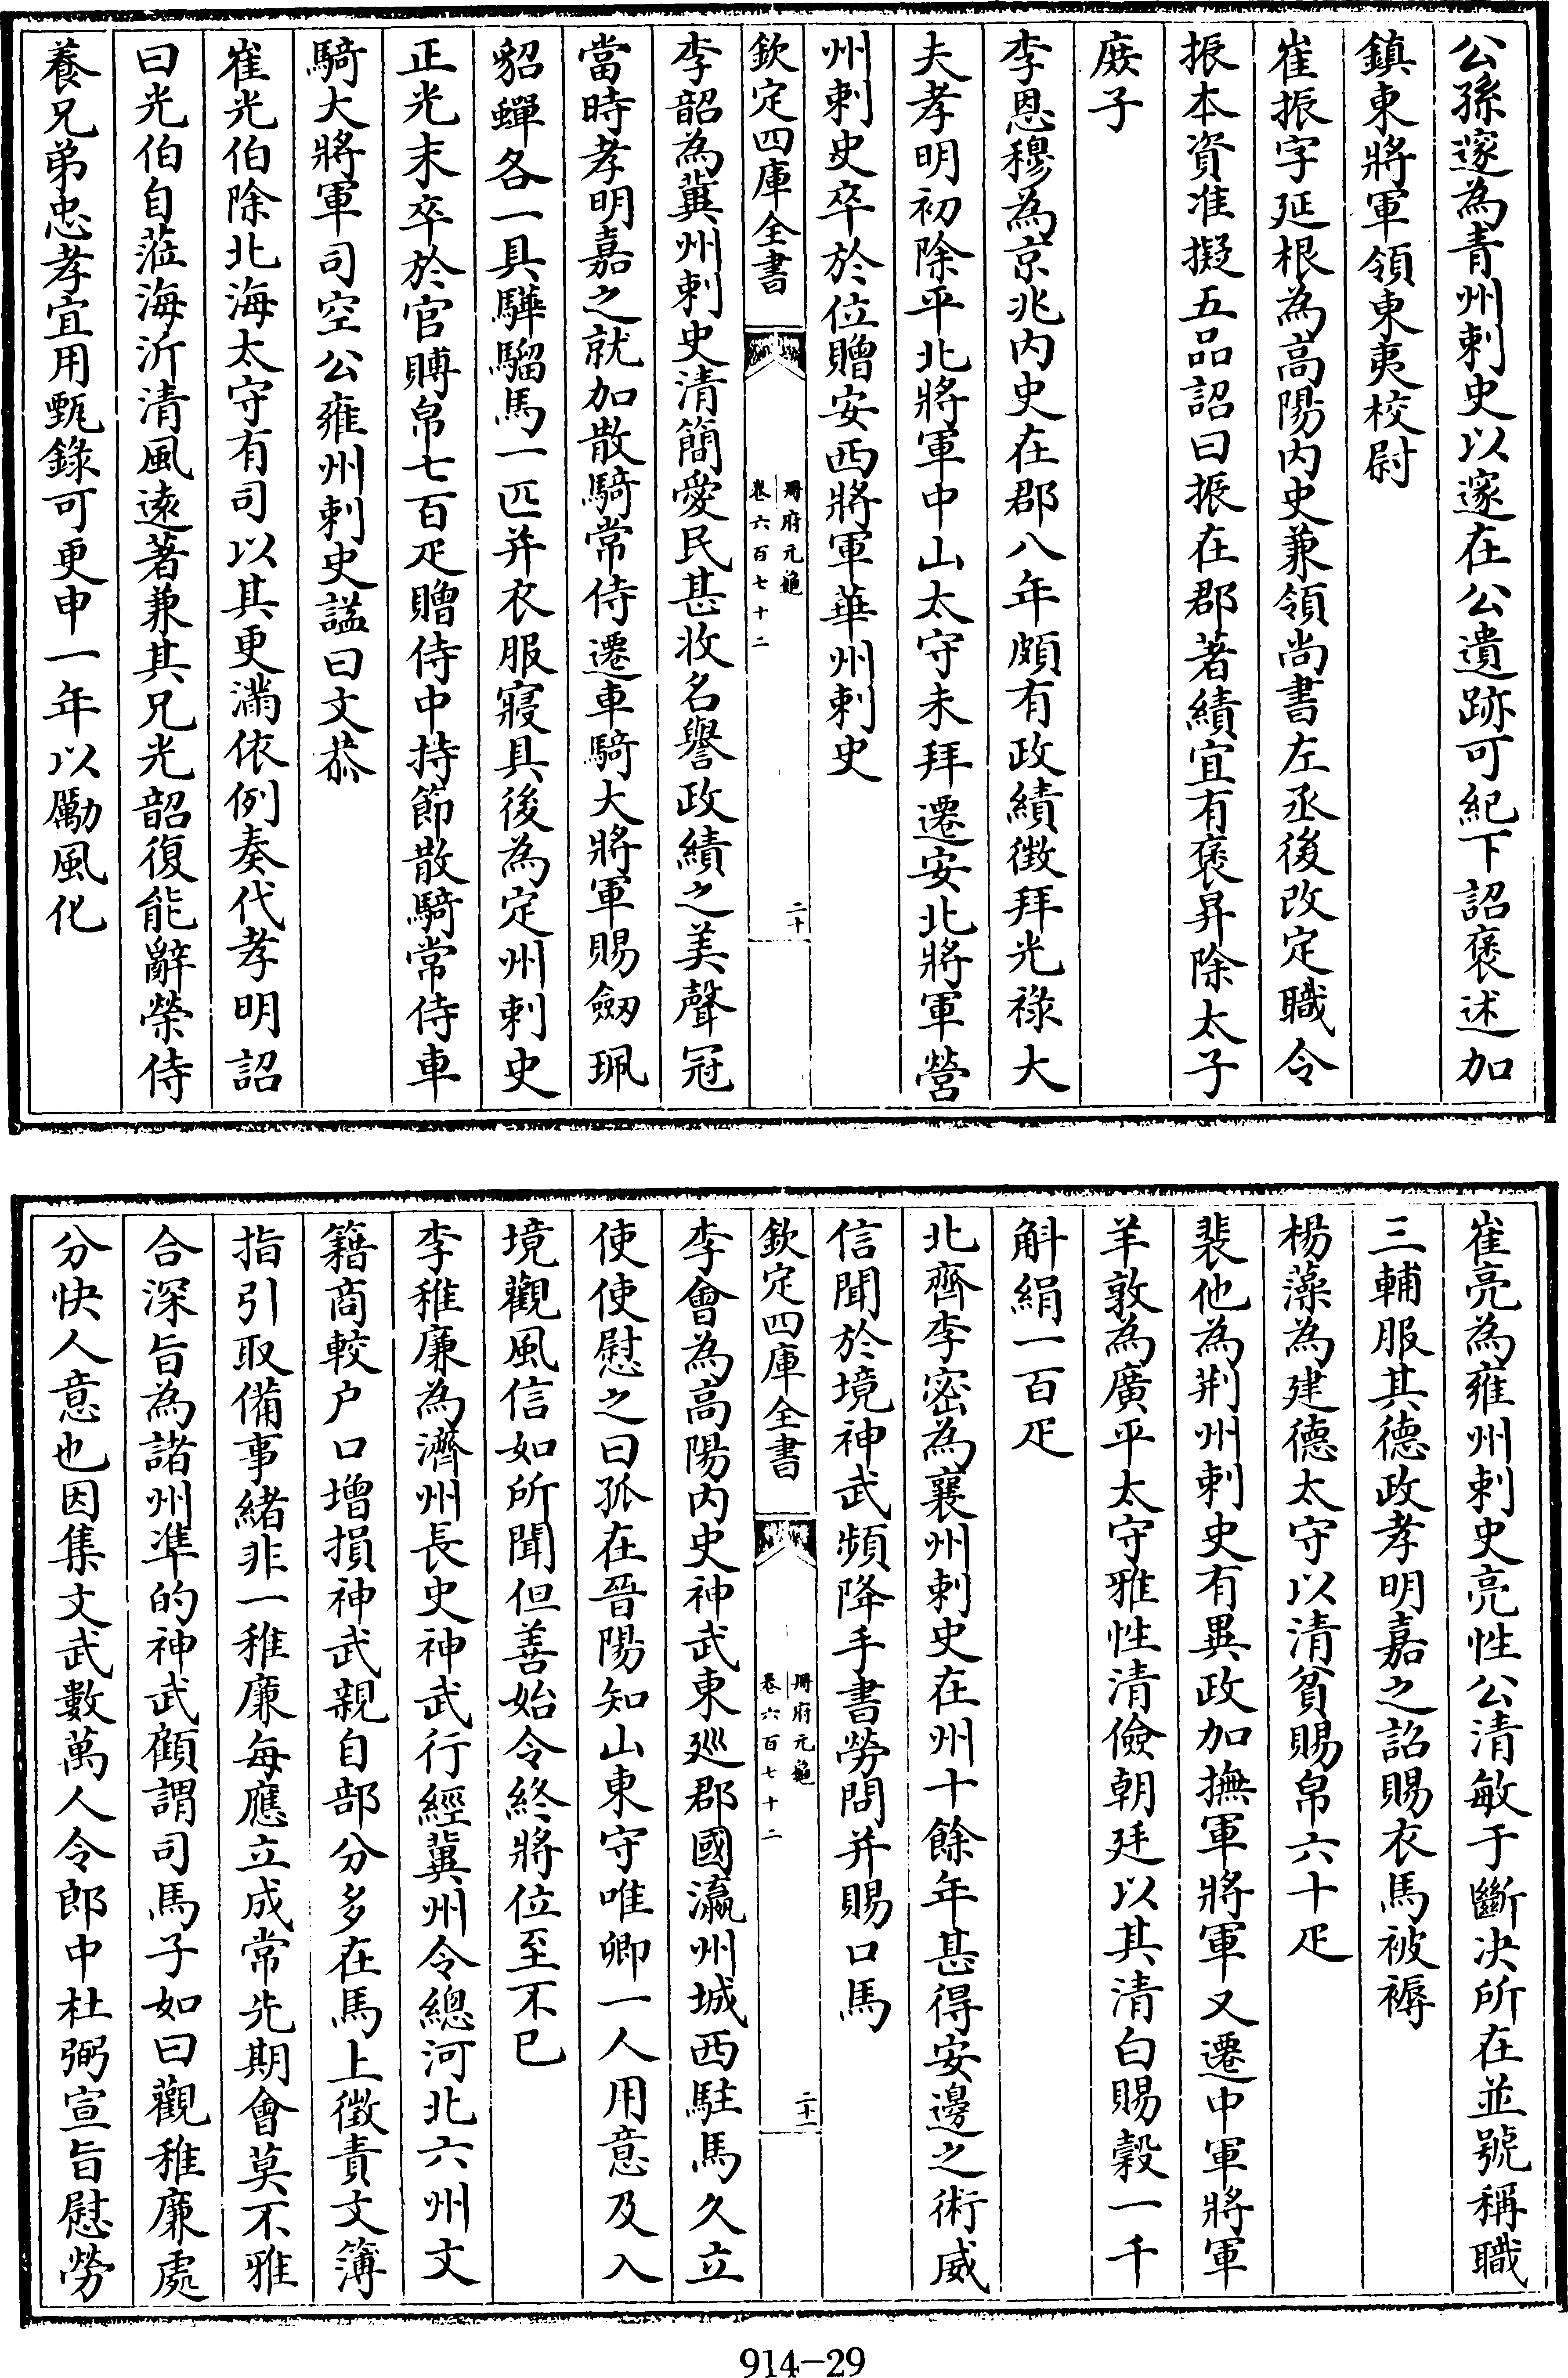 公孫邃為青州刺史以邃在公遺跡可紀下詔褒述加
鎮東將軍領東夷校尉
崔振字延根為高陽內史兼領尚書左丞後改定職令
振本資准擬五品詔曰振在郡著績宜有褒昇除太子
庶子
李恩穆為京兆內史在郡八年頗有政績徵拜光祿大
夫孝明初除平北將軍中山太守未拜遷安北將軍營
州刺史卒於位贈安西將軍華州刺史
欽定四庫全書
冊府元龜
卷六百七十二
二十
李韶為冀州刺史清簡愛民甚收名譽政績之美聲冠
當時孝明嘉之就加散騎常侍遷車騎大將軍賜劔珮
貂蟬各一具驊騮馬一匹并衣服寢具後為定州刺史
正光末卒於官賻帛七百疋贈侍中持節散騎常侍車
騎大將軍司空公雍州刺史謚曰文恭
崔光伯除北海太守有司以其更滿依例奏代孝明詔
曰光伯自蒞海沂清風遠著兼其兄光韶復能辭榮侍
養兄弟忠孝宜用甄錄可更申一年以勵風化
崔亮為雍州刺史亮性公清敏于斷決所在並號稱職
三輔服其德政孝明嘉之詔賜衣馬被褥
楊藻為建德太守以清貧賜帛六十疋
裴他為荆州刺史有異政加撫軍將軍又遷中軍將軍
羊敦為廣平太守雅性清儉朝廷以其清白賜穀一千
斛絹一百疋
北齊李密為襄州刺史在州十餘年甚得安邊之術威
信聞於境神武頻降手書勞問并賜口馬
欽定四庫全書
冊府元龜
卷六百七十二
二十一
李會為高陽內史神武東巡郡國瀛州城西駐馬久立
使使慰之曰孤在晉陽知山東守唯卿一人用意及入
境觀風信如所聞但善始令終將位至不已
李稚廉為濟州長史神武行經冀州令總河北六州文
籍商較户口增損神武親自部分多在馬上徵責文簿
指引取備事緒非一稚廉每應立成常先期會莫不雅
合深旨為諸州準的神武顧謂司馬子如曰觀稚廉處
分快人意也因集文武數萬人令郎中杜弼宣旨慰勞
914-29